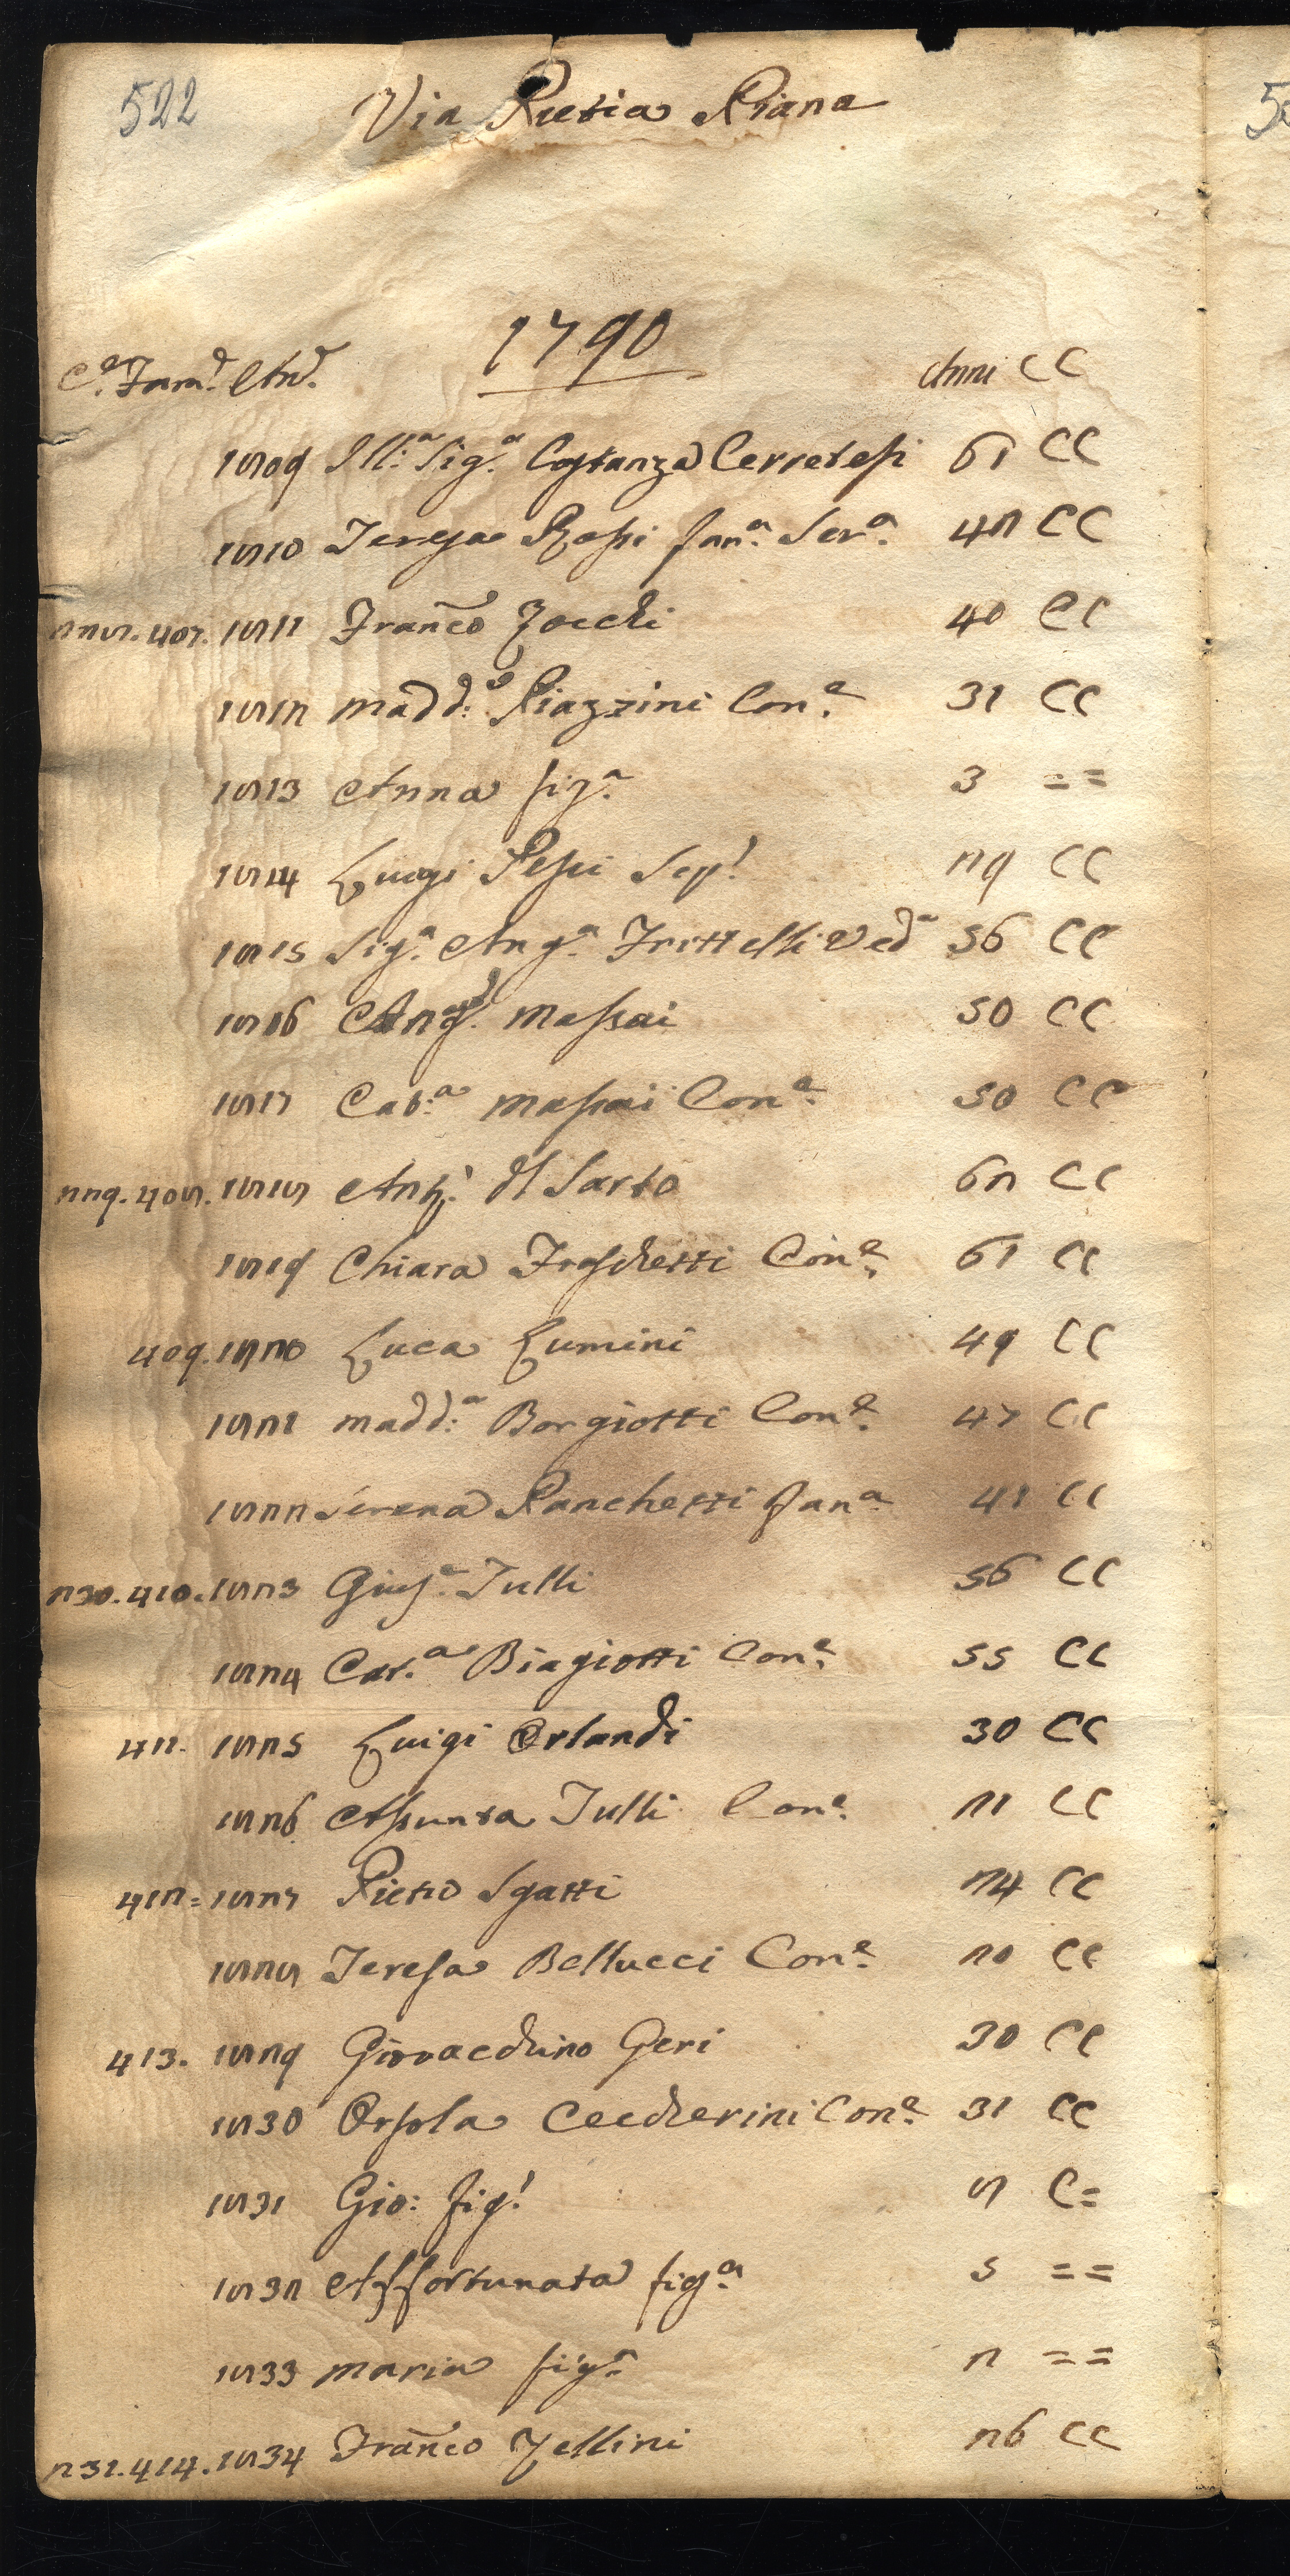 522
Via Pietra Piana
1790
Ce. Fame. Ane. Anni CC
1809 Ill:a Sig.a Costanza Cerretesi 61 CC
1810 Teresa Rossi fan.a Ser.a 42 CC
228.407. 1811 Franco Zocchi 40 CC
1812 Madd:a Piazzini Con.e 31 CC
1813 Anna fig.a 3 ==
1814 Luigi Pessi Sep.l 29 CC
1815 Sig.a Ang.a Frittelli Ved.a 56 CC
1816 Ang.l Massai 50 CC
1817 Cat:a Massai Con.e 50 CC
229.408. 1818 Ant.o del Sarto 62 CC
1819 Chiara Fraschetti Con.e 61 CC
409. 1820 Luca Lumini 49 CC
1821 Madd:a Borgiotti Con.e 47 CC
1822 Serena Panchetti fan.a 41 CC
230.410. 1823 Gius.e Tulli 56 CC
1824 Cat.a Biagiotti Con.e 55 CC
411. 1825 Luigi Orlandi 30 CC
1826 Assunta Tulli Con.e 21 CC
412= 1827 Pietro Sgatti 24 CC
1828 Teresa Bellucci Con.e 20 CC
413. 1829 Giovacchino Geri 30 CC
1830 Orsola Ceccherini Con.e 31 CC
1831 Gio: fig.l 8 C=
1832 Affortunata fig.a 5 ==
1833 Maria fig.a 2 ==
231.414. 1834 Franco Zellini 26 CC